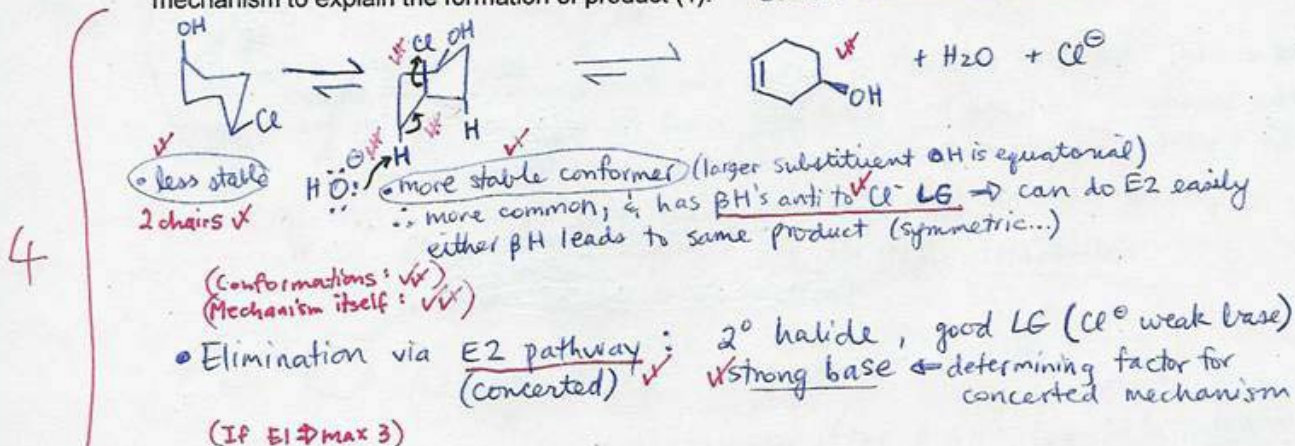 mechanism to explain the formation of product (4).
OH
Cl
Cl OH
H
H
HO:
⊖
OH + H2O + Cl⊖
• less stable
2 chairs ✓
• more stable conformer (larger substituent OH is equatorial)
∴ more common, & has βH's anti to Cl⁻ LG ⇒ can do E2 easily
either βH leads to same product (symmetric...)
4
(Conformations: ✓✓)
(Mechanism itself: ✓✓)
• Elimination via E2 pathway: 2° halide, good LG (Cl⊖ weak base)
(concerted) ✓ ✓ strong base ← determining factor for
concerted mechanism
(If E1 ⇒ max 3)